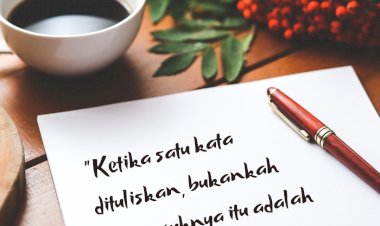 "Ketika satu kata
dituliskan, bukankah
itu adalah